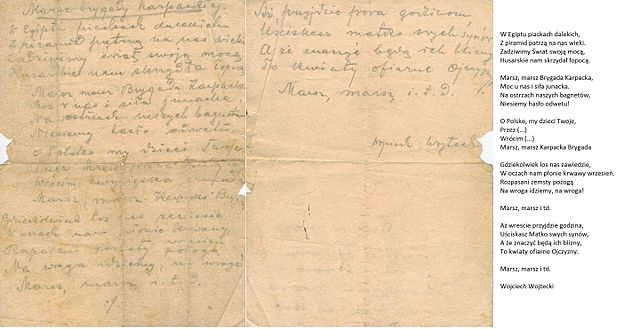 Marsz brygady karpackiej.
W Egiptu piaskach dalekich
Z piramid patrzą na nas wieki
Zadziwimy świat swoją mocą
Husarskie nam skrzydła łopocą
Marsz marsz Brygada Karpacka
Moc u nas i siła junacka
Na ostrzach naszych bagnetów
Niesiemy hasło odwetu
O Polsko my dzieci Twoje
Wrócim
Marsz marsz Karpacka Bryg
Gdziekolwiek los nas zawiedzie
W oczach nam płonie krwawy
wrzesień
pożogą
Na wroga idziemy, na wroga
Marsz, marsz i.t.d.
./.
Aż przyjdzie pora
Uściskasz matko swych synów
A że znaczyć będą ich blizny
To kwiaty ofiarne Ojczyzny
Marsz, marsz, i.t.d.
W Egiptu piaskach dalekich,
Z piramid patrzą na nas wieki.
Zadziwimy Świat swoją mocą,
Husarskie nam skrzydał łopocą.
Marsz, marsz Brygada Karpacka,
Moc u nas i siła junacka.
Na ostrzach naszych bagnetów,
Niesiemy hasło odwetu!
O Polsko, my dzieci Twoje,
Przez (...)
Wrócim (...)
Marsz, marsz Karpacka Brygada
Gdziekolwiek los nas zawiedzie,
W oczach nam płonie krwawy wrzesień.
Rozpasani zemsty pożogą
Na wroga idziemy, na wroga!
Marsz, marsz i td.
Aż wrescie przyjdzie godzina,
Uściskasz Matko swych synów,
A że znaczyć będą ich blizny,
To kwiaty ofiarne Ojczyzny.
Marsz, marsz i td.
Wojciech Wojtecki